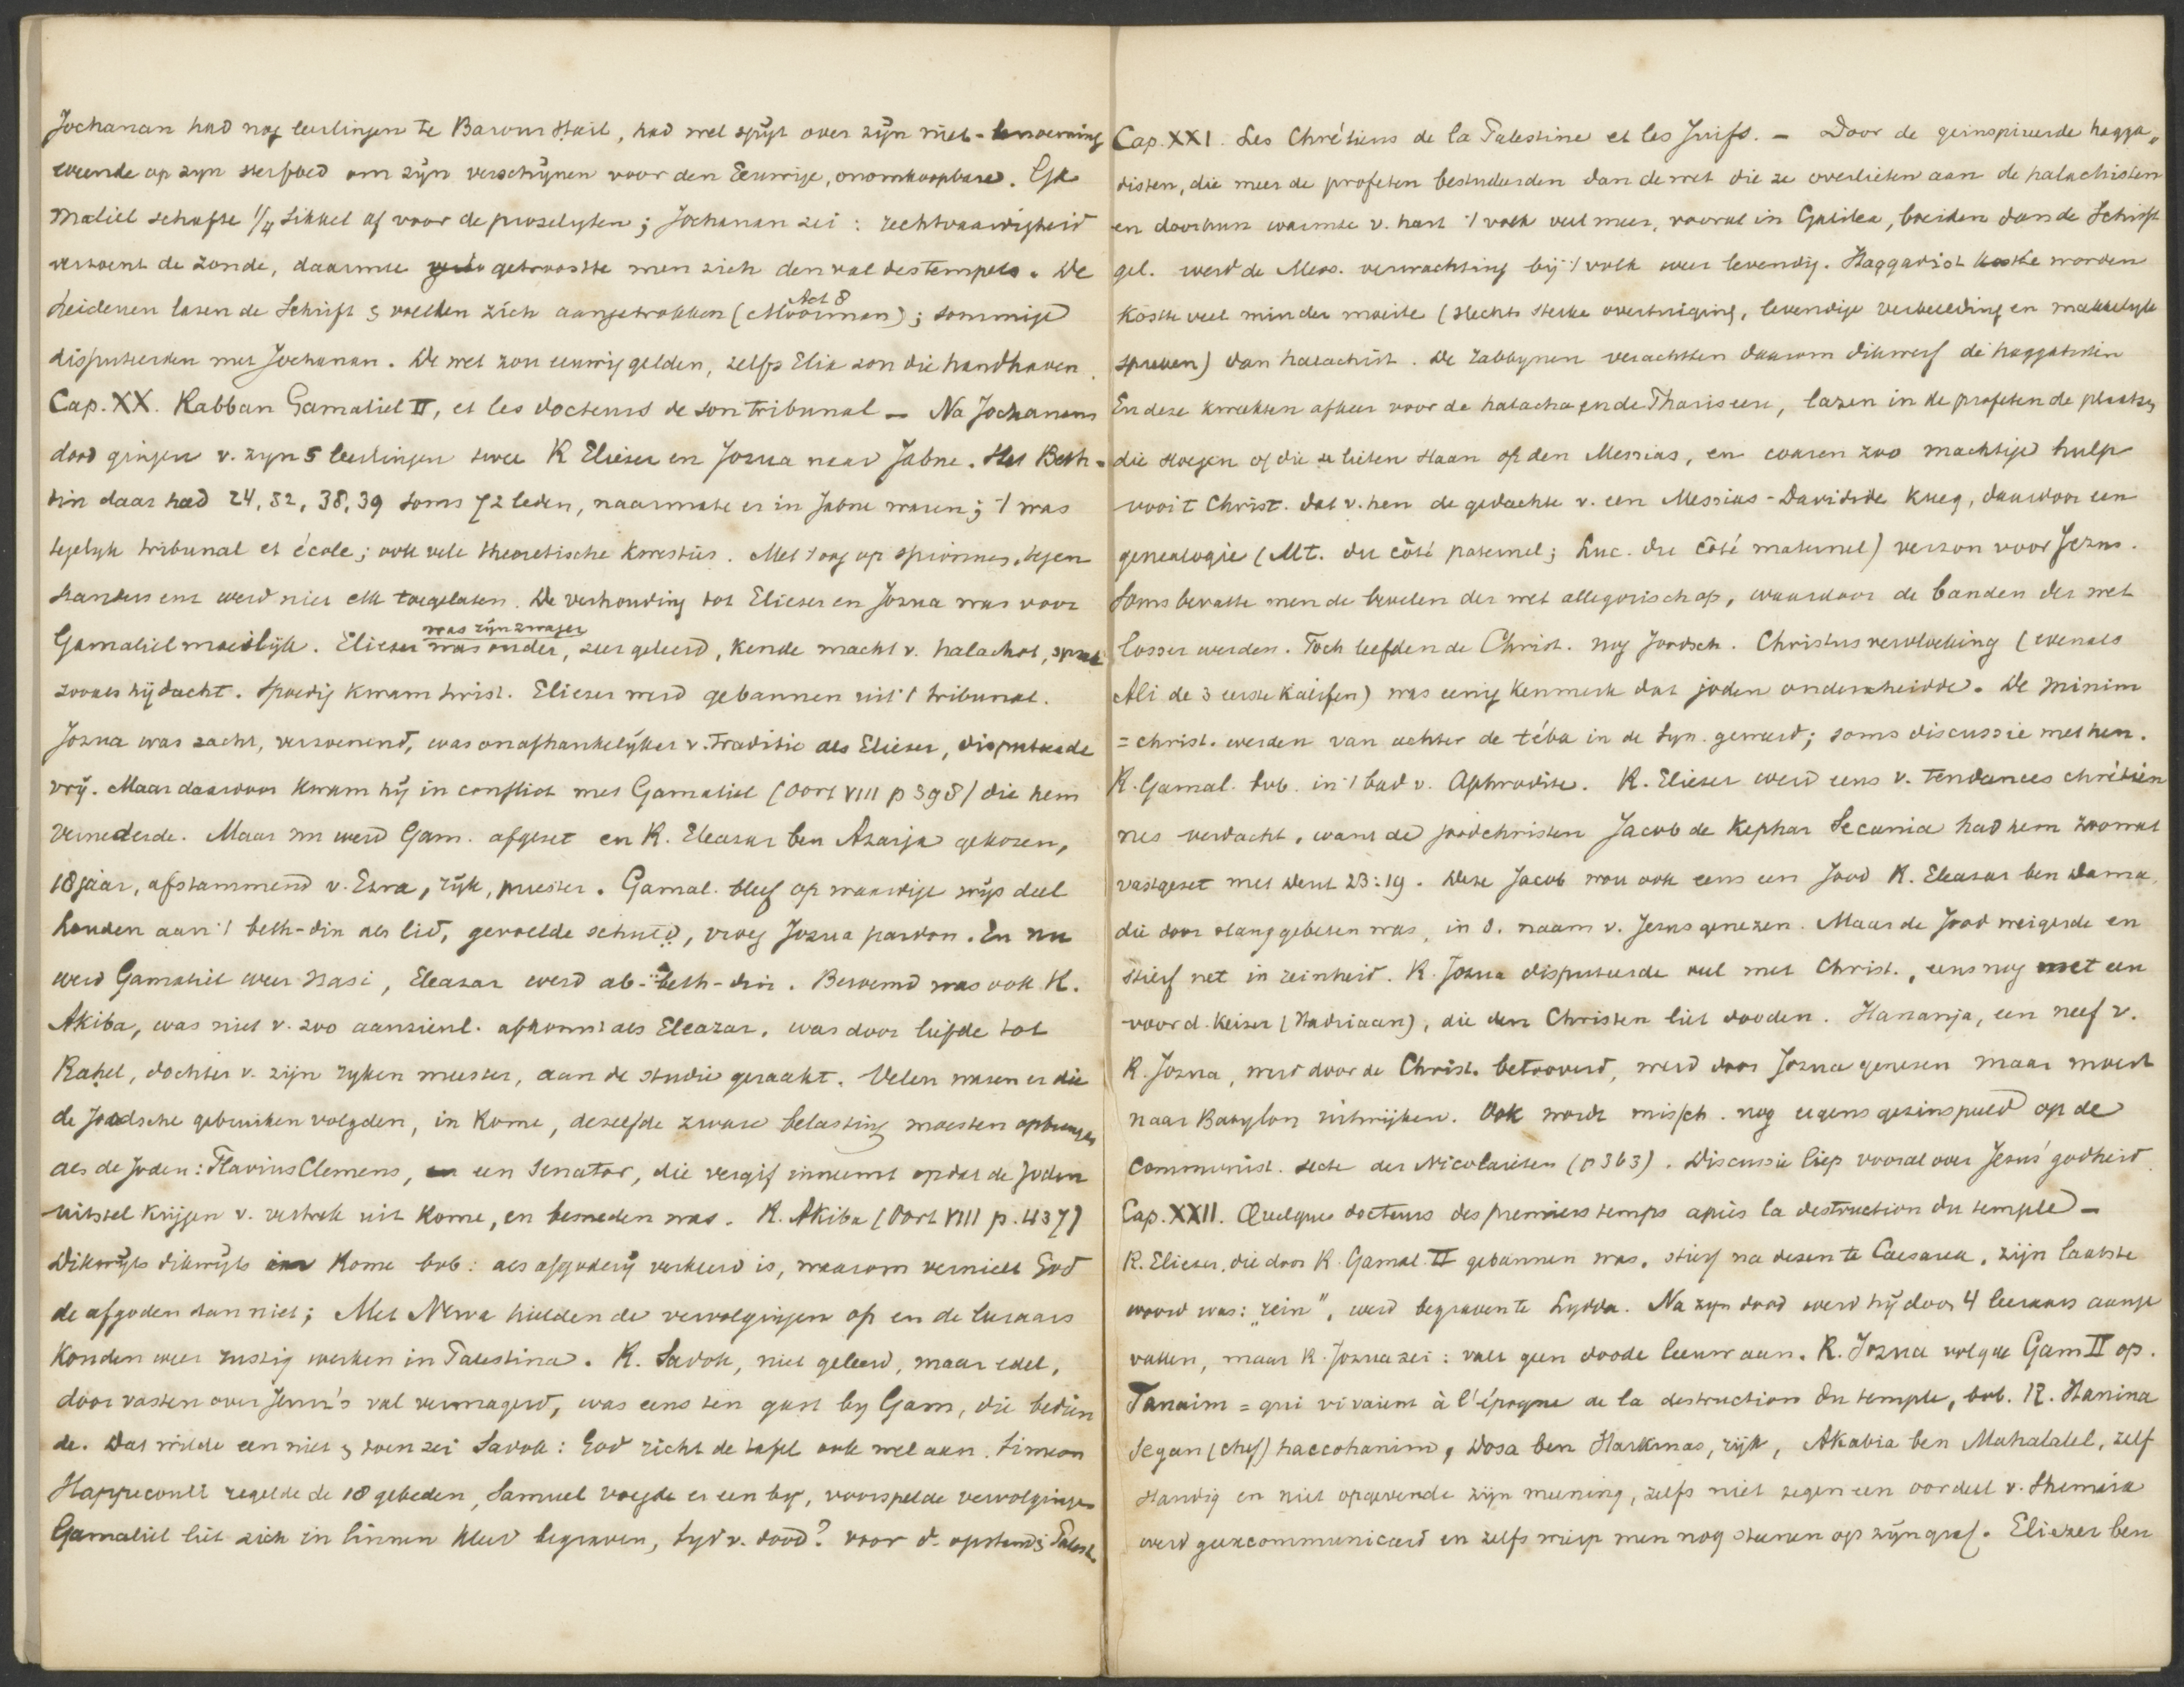 Jochanan had nog leerlingen te Barour Hail, had wel spijt over zijn niet-benoeming
weende op zyn sterfbed om zijn verschijnen voor den Eeuwige, onomkoopbare. Ga
maliel schafte 1/4 sikkel af voor de proselyten; Jochanan zei: rechtvaardigheid
verzoent de zonde, daarmee getroostte men zich den val des tempels. De
heidenen lazen de Schrift & voelden zich aangetrokken (Act 8 Moorman); sommige
disputeerden met Jochanan. De wet zou eeuwig gelden, zelfs Elia zou die handhaven.
Cap. XX. Rabban Gamaliel II, et les docteurs de son tribunal – Na Jochanans
dood gingen v. zyn 5 leerlingen twee R Elieser en Josua naar Jabne. Het Beth-
din daar had 24, 32, 38, 39 soms 72 leden, naarmate er in Jabne waren; 't was
tegelyk tribunal et école; ook vele theoretische kwesties. Met oog op spionnes, tegen
standers enz werd niet elk toegelaten. De verhouding tot Elieser en Josua was voor
Gamaliel moeilijk. Elieser was zijn zwager was ouder, zeer geleerd, kende macht v. halachot, sprak
zooals hij dacht. Spoedig kwam twist. Elieser werd gebannen uit 't tribunal.
Josua was zacht, verzoenend, was onafhankelijker v. traditie als Elieser, disputeerde
vrij. Maar daardoor kwam hij in conflict met Gamaliel (Oort VIII p 398) die hem
vernederde. Maar nu werd Gam. afgezet en R. Eleasar ben Asarja gekozen,
18 jaar, afstammend v. Ezra, rijk, priester. Gamal. bleef op waardige wijs deel
houden aan 't beth-din als lid, gevoelde schuld, vroeg Josua pardon. En nu
werd Gamaliel weer Nasi, Eleazar werd ab-beth-din. Beroemd was ook R.
Akiba, was niet v. zoo aanzienl. afkomst als Eleazar, was door liefde tot
Rahel, dochter v. zijn ryken meester, aan de studie geraakt. Velen waren er die
de Joodsche gebruiken volgden, in Rome, dezelfde zware belasting moesten opbrengen
als de Joden: Flavius Clemens, een Senator, die vergif inneemt opdat de Joden
uitstel krijgen v. vertrek uit Rome, en besneden was. R. Akiba (Oort VIII p. 437)
Dikwijls dikwijls Rome bvb: als afgoderij verkeerd is, waarom vernielt God
de afgoden dan niet; Met Nerva hielden de vervolgingen op en de leraars
konden weer rustig werken in Palestina. R. Sadok, niet geleerd, maar edel,
door vasten over Jeruz's val vermagerd, was eens ten gast by Gam, die bedien
de. Dat wilde een niet & toen zei Sadok: God richt de tafel ook wel aan. Simeon
Happecouli regelde de 18 gebeden, Samuel voegde er een by, voorspelde vervolgingen
Gamaliel liet zich in linnen kleed begraven, tyd v. dood? voor d. opstand i Palest.
Cap. XXI. Les Chrétiens de la Palestine et les Juifs. – Door de geinspireerde hagga-
disten, die meer de profeten bestudeerden dan de wet die ze overlieten aan de halachisten
en door hun warmte v. hart 't volk veel meer, vooral in Galilea, boeiden dan de Schrift
gel. werd de Mess. verwachting bij 't volk weer levendig. Haggadist worden
kostte veel minder moeite (slechts sterke overtuiging, levendige verbeelding en makkelyk
spreken) dan halachist. De rabbynen verachtten daarom dikwerf de haggadisten
En deze kweekten afkeer voor de halacha en de Phariseen, lazen in de profeten de plaatsen
die sloegen of die ze lieten slaan op den Messias, en waren zoo machtige hulp
voor 't Christ. dat v. hen de gedachte v. een Messias-Davidide kreeg, daardoor een
genealogie (Mt. du côté paternel; Luc. du côté maternel) verzon voor Jezus.
Soms bevatte men de bevelen der wet allegorisch op, waardoor de banden der wet
losser werden. Toch leefden de Christ. nog Joodsch. Christusvervloeking (evenals
Ali de 3 eerste Kalifen) was eenig kenmerk dat joden onderscheidde. De Minim
= christ. werden van achter de téba in de Syn. geweerd; soms discussie met hen.
R. Gamal. bvb. in 't bad v. Aphrodite. R. Elieser werd eens v. tendances chrétien
nes verdacht, want de joodchristen Jacob de Kephar Secania had hem zoowat
vastgezet met Deut 23:19. Deze Jacob wou ook eens een Jood R. Eleasar ben Dama,
die door slang gebeten was, in d. naam v. Jesus genezen. Maar de Jood weigerde en
stierf net in reinheid. R. Josua disputeerde veel met Christ., eens nog met een
voor d. Keizer (Hadriaan), die den Christen liet dooden. Hananja, een neef v.
R. Josua, werd door de Christ. betooverd, werd door Josua genezen maar moest
naar Babylon uitwijken. Ook wordt missch. nog ergens gezinspeeld op de
communist. secte der Nicolaieten (p 363). Discussie liep vooral over Jesus' godheid.
Cap. XXII. Quelques docteurs des premiers temps après la destruction du temple –
R. Elieser, die door R. Gamal. II gebannen was, stierf na dezen te Caesarea, zijn laatste
woord was: „rein", werd begraven te Lydda. Na zyn dood werd hij door 4 leeraars aange
vallen, maar R. Josua zei: valt geen doode leeuw aan. R. Josua volgde Gam II op.
Tanaim = qui vivaient à l'époque de la destruction du temple, bvb. R. Hanina
Segan (chef) haccohanim, Dosa ben Harkinas, rijk, Akabia ben Mahalalel, zelf
standig en niet opgevende zijn meening, zelfs niet tegen een oordeel v. Shemaia
werd geëxcommuniceerd en zelfs wierp men nog steenen op zijn graf. Eliezer ben